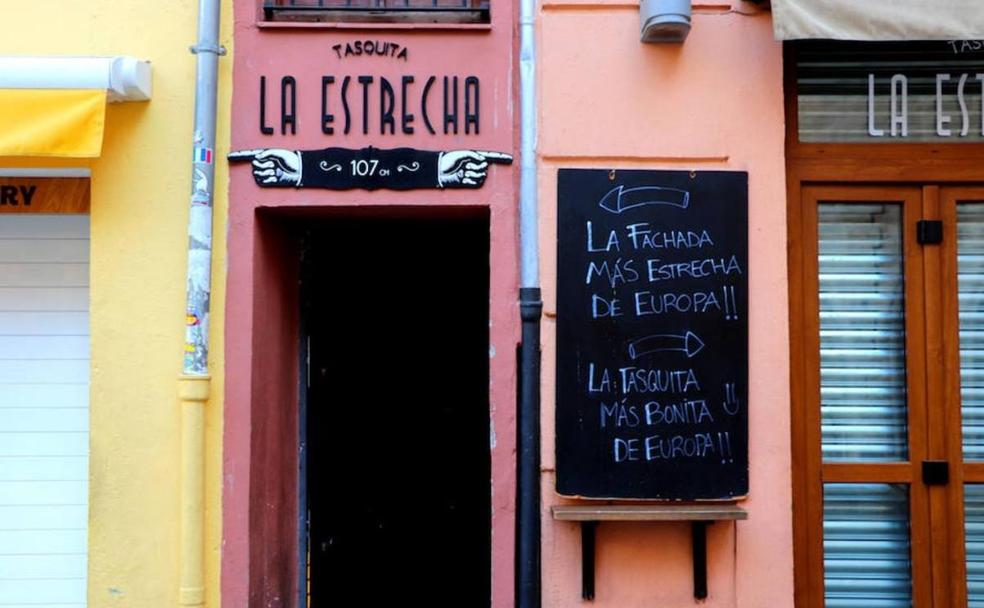 TASQUITA
LA ESTRECHA
107 CM
RY
LA FACHADA
MÁS ESTRECHA
DE EUROPA!!
LA TASQUITA
MÁS BONITA
DE EUROPA!!
TAS
LA ES